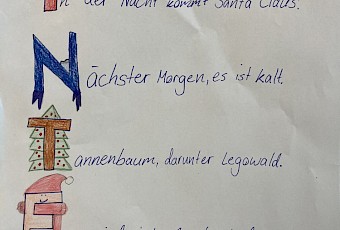 In der Nacht kommt Santa Claus.
Nächster Morgen, es ist kalt.
Tannenbaum, darunter Legowald.
E